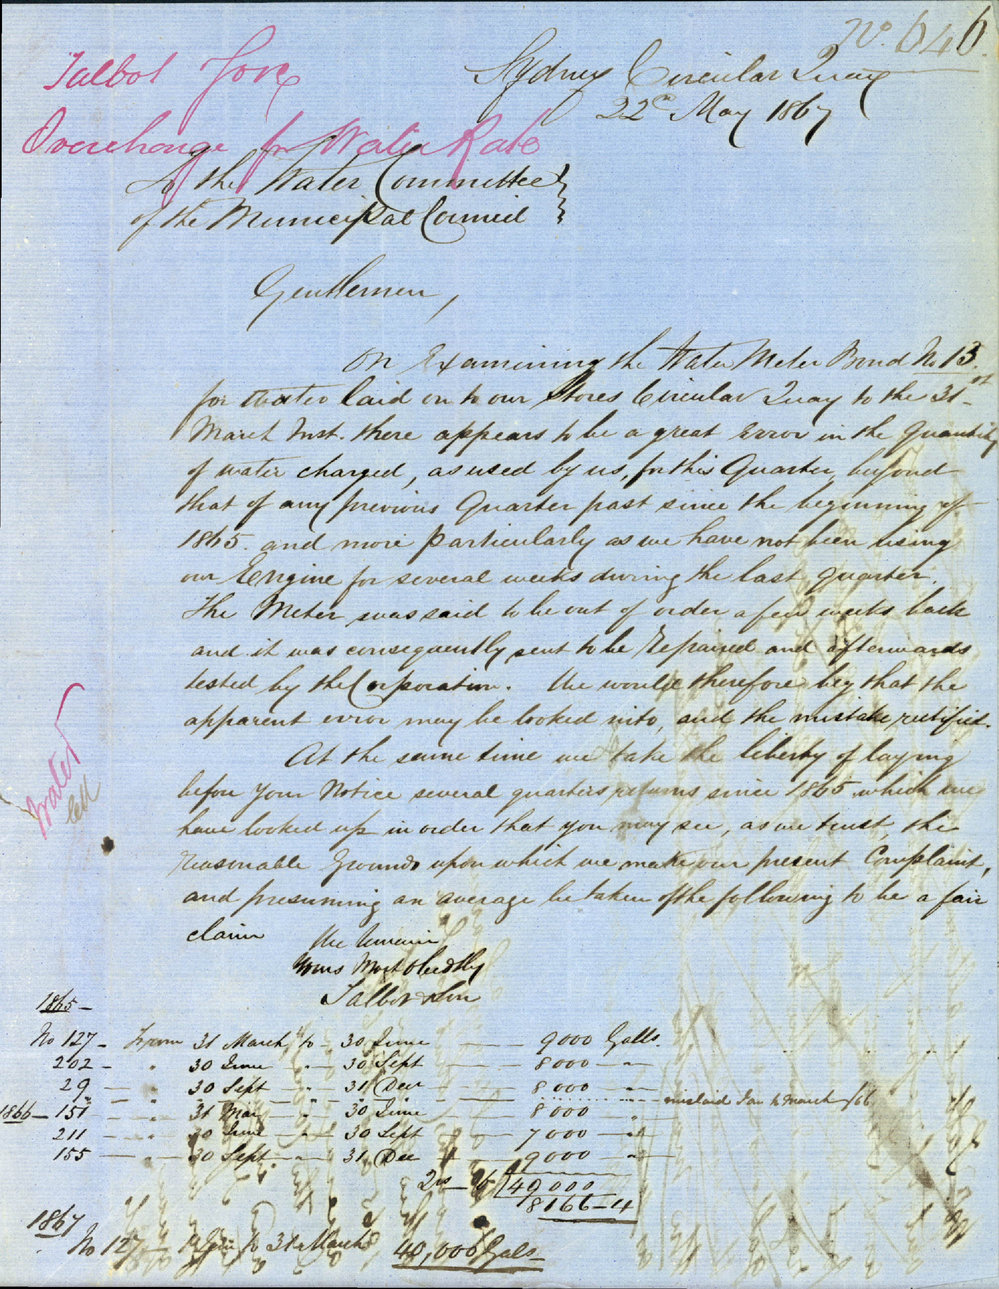 No. 646
Talbot & Son
Sydney Circular Quay
22nd May 1867
Overcharge for Water Rate
To the Water Committee
of the Municipal Council
Gentlemen,
On Examining the Water Meter Bond No 13.
for Water laid on to our Stores Circular Quay to the 31st
March Inst. there appears to be a great Error in the Quantity
of water charged, as used by us, for this Quarter, beyond
that of any previous Quarter past since the beginning of
1865. and more particularly as we have not been using
our Engine for several weeks during the last quarter.
The Meter was said to be out of order a few weeks back
and it was consequently sent to be Repaired and afterwards
tested by the Corporation. We would therefore beg that the
apparent error may be looked into, and the mistake rectified.
At the same time we take the liberty of laying
before your Notice several quarters returns since 1865 which we
have looked up in order that you may see, as we trust, the
reasonable Grounds upon which we make our present Complaint,
and presuming an average be taken of the following to be a fair
claim
We Remain
Yours Most Obedtly
Talbot & Son
Water
1865 -
No 127 - From 31 March to 30 June — 9000 Galls.
202 - " 30 June " 30 Sept — 8000 "
29 — " 30 Sept " 31 Decr — 8000 "
mislaid Jan to March /66
1866 - 151 — " 31 Mar " 30 June — 8000 "
211 — " 30 June — 30 Sept — 7000 "
155 — " 30 Sept " 31 Dec — 9000 —
40,000
8166-4
1867
No 127 — 1 Jan to 31st March 40,000 Gals